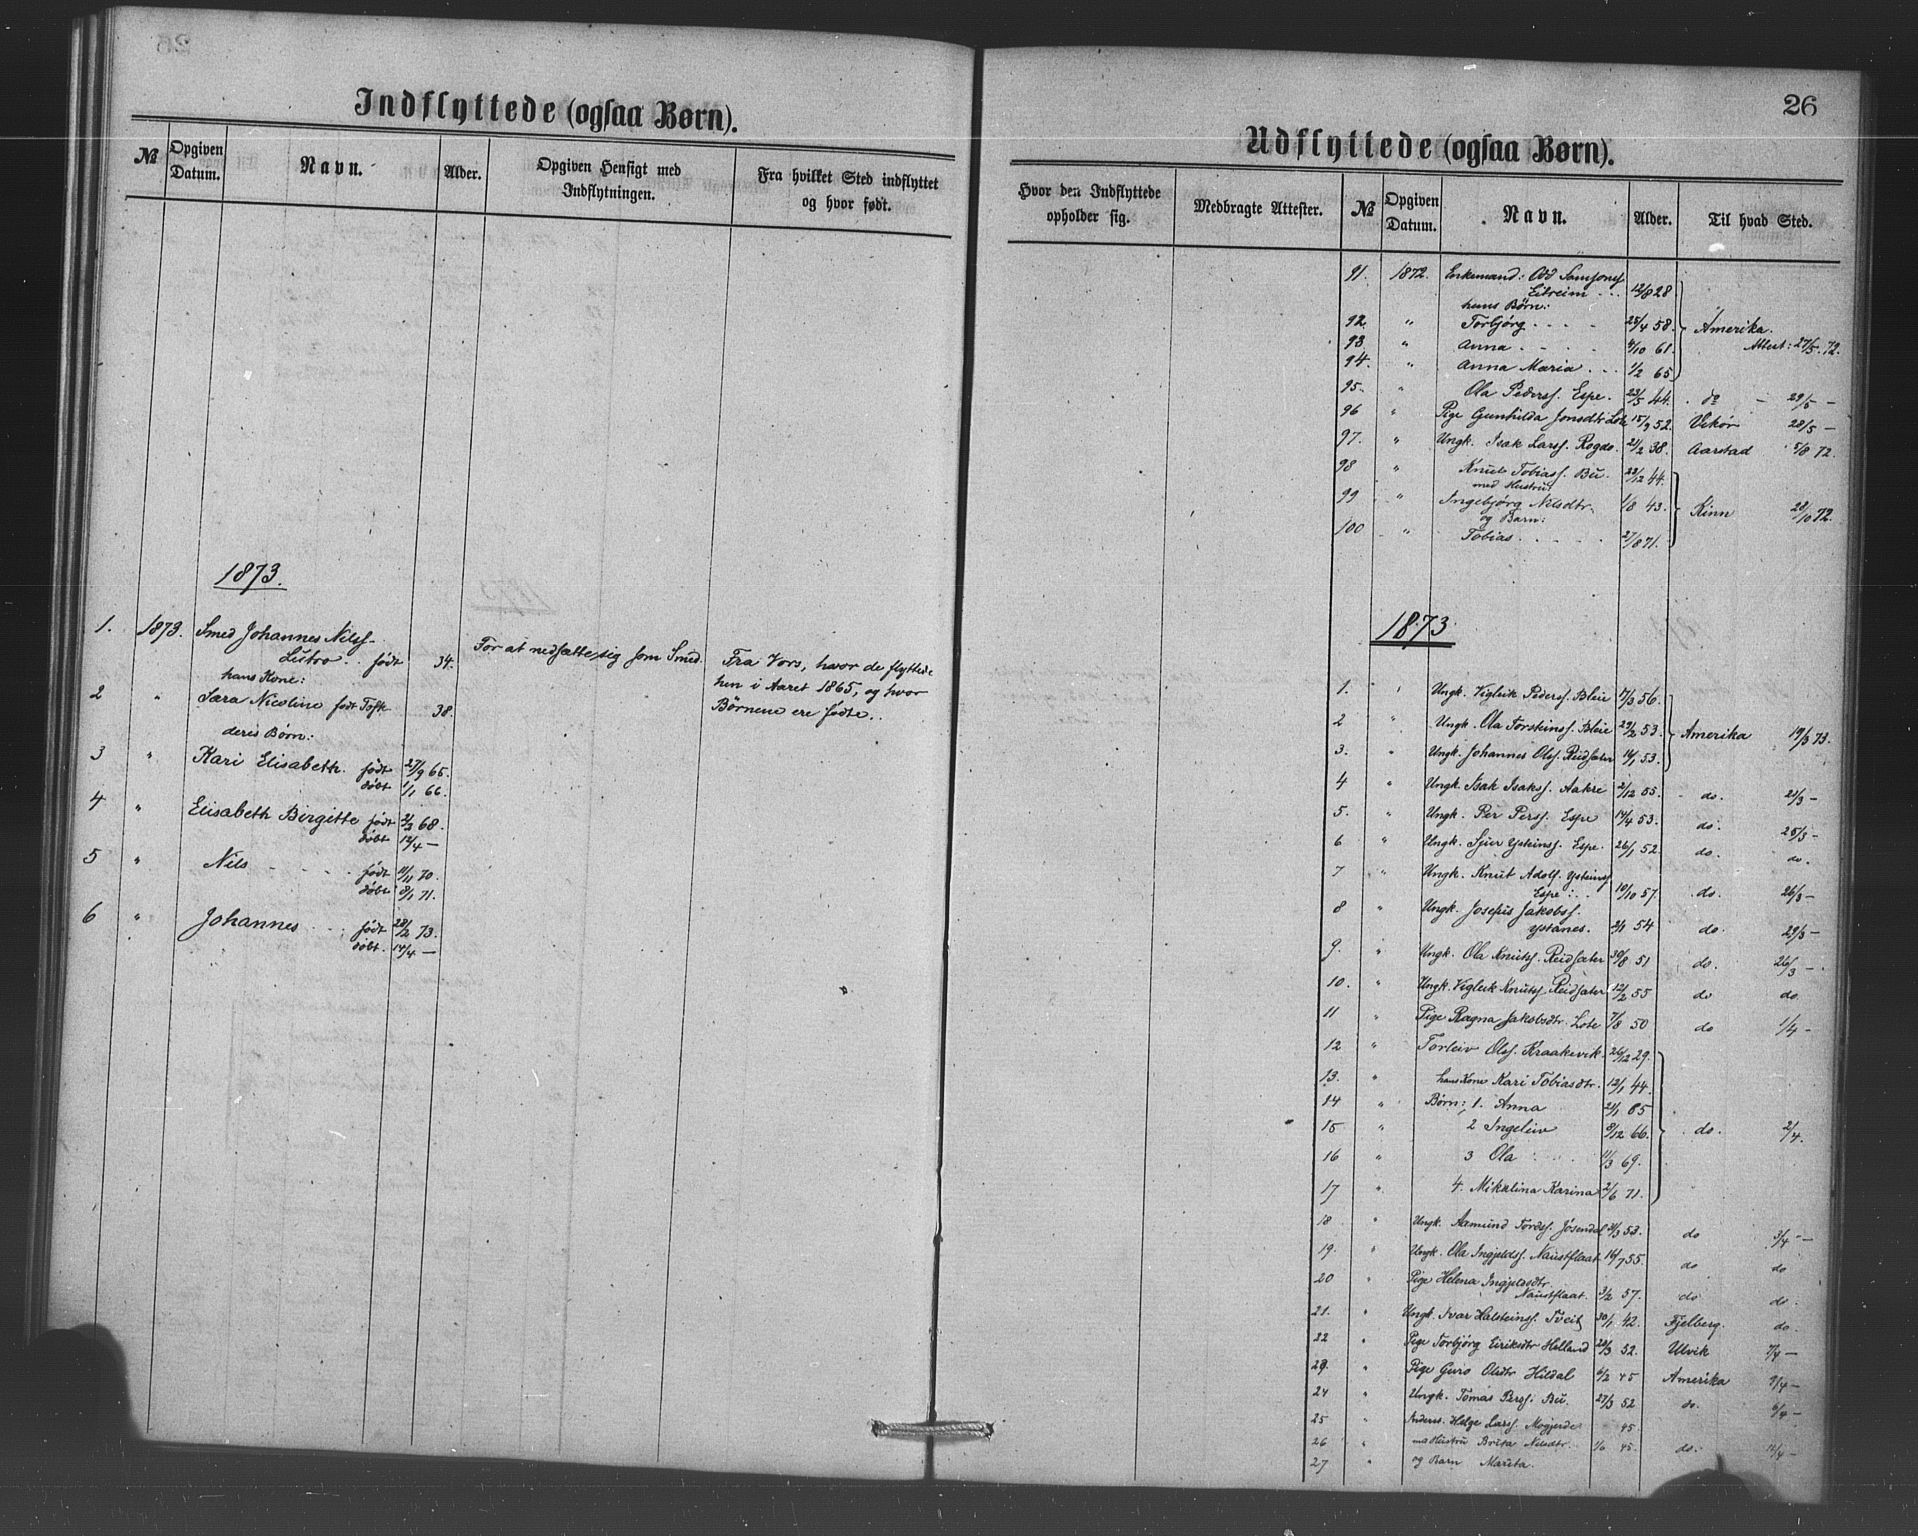 Indflyttede (ogsaa Børn).
№ Opgiven Datum. Navn. Alder. Opgiven Hensigt med Indflytningen. Fra hvilket Sted indflyttet og hvor født.
1873.
1. 1873. Smed Johannes Nilss.
Lutro. . født 34. For at nedsætte sig som Smed. Fra Vors, hvor de flyttede
hans Kone: hen i Aaret 1865, og hvor
2 " Sara Nicoline født 38. Børnene ere fødte.
deris Børn:
3 " Kari Elisabeth. født 27/9 65.
døbt 1/1 66.
4 " Elisabeth Birgitte født 2/2 68.
døbt 12/4 —
5 " Nils - - - - født 11/11 70.
døbt 8/1 71.
6 " Johannes . . . født 28/2 73.
døbt. 14/4 —
26
Udflyttede (ogsaa Børn).
Hvor den Indflyttede opholder sig. Medbragte Attester. № Opgiven Datum. Navn. Alder. Til hvad Sted.
91. 1872. Enkemand: Odd Samsons.
Eitreim . . 12/8 28
hans Børn:
92. " Torbjørg - - - - 25/4 58. Amerika.
93 " Anna . - - - /10 61. Attest: 27/5. 72.
94. " Anna Maria . . . 1/2 65
95. " Ola Peders. Espe. 23/5 44. do — 29/5 —
96 " Pige Gunhilda Jonsdtr Lote 15/9 52. Vikør 28/5 —
97. " Ungk. Isak Larss. Rogde. 21/2 38. Aarstad 5/8 72.
98 " Knut Tobiass. Bu. 22/12 44.
med Hustru:
99 " Ingebjørg Nilsdtr. 1/8 43. Kinn 28/10 72.
og Barn:
100 " Tobias . . . . . 27/8 71.
1873.
1. " Ungk. Vigleik Peders. Bleie 17/3 56.
2 " Ungk. Ola Torsteins. Bleie 23/2 53. Amerika 19/3 73.
3. " Ungk. Johannes Ols. Reidsæter 14/1 53.
4 " Ungk. Isak Isaks. Aakre 2/12 55. - do. 21/3 —
5. " Ungk. Per Pers. Espe 14/4 53. do. 25/3 —
6 " Ungk. Ysteins. Espe. 26/1 52. do. do.
7 " Ungk. Knut Adolf. Ysteins.
Espe . . . 19/10 57. do. 26/3 —
8 " Ungk. Josefus Jakobss.
Ystanes. 2/1 54 do. 29/3 —
9. " Ungk. Ola Knuts. Reidsæter 30/8 51 do. 26/3 —
10. " Ungk. Vigleik Knuts. Reidsæter 12/2 55 do do.
11 " Pige Ragna Jakobsdtr. Lote 7/8 50 do 1/4 —
12 " Torleiv Ols. Kraakevik. 26/12 29.
13. " hans Kone Kari Tobiasdtr. 12/1 44.
14 " Børn: 1. Anna 21/1 65
15 " 2 Ingeleiv 9/12 66. do. 2/4.
16 " 3 Ola . . . 11/3 69.
17 " 4. Mikalina Karina 2/6 71.
18 " Ungk. Aamund Tords. Jøsendal 31/3 53. do 3/4 —
19. " Ungk. Ola Ingjelds. Naustflaat 16/7 55. do do
20 " Pige Helena Ingjeldsdtr.
Naustflaat. 3/2 57. do do.
21. " Ungk. Ivar Halsteins. Tveit 30/1 42. Fjelberg. do.
22 " Pige Torbjørg Eiriksdtr Helland 20/3 52. Ulvik 7/4 —
23. " Pige Guro Olsdtr Hildal 6/2 45 Amerika 9/4 —
24 " Ungk. Tomas Pers. Bu. 27/3 52 do. 6/4 —
25 " Helge Larss. Mogjerde 45
26 " Hustru Brita Nilsdtr. 1/6 45. do. 12/4 —
27 " og Barn Marita.